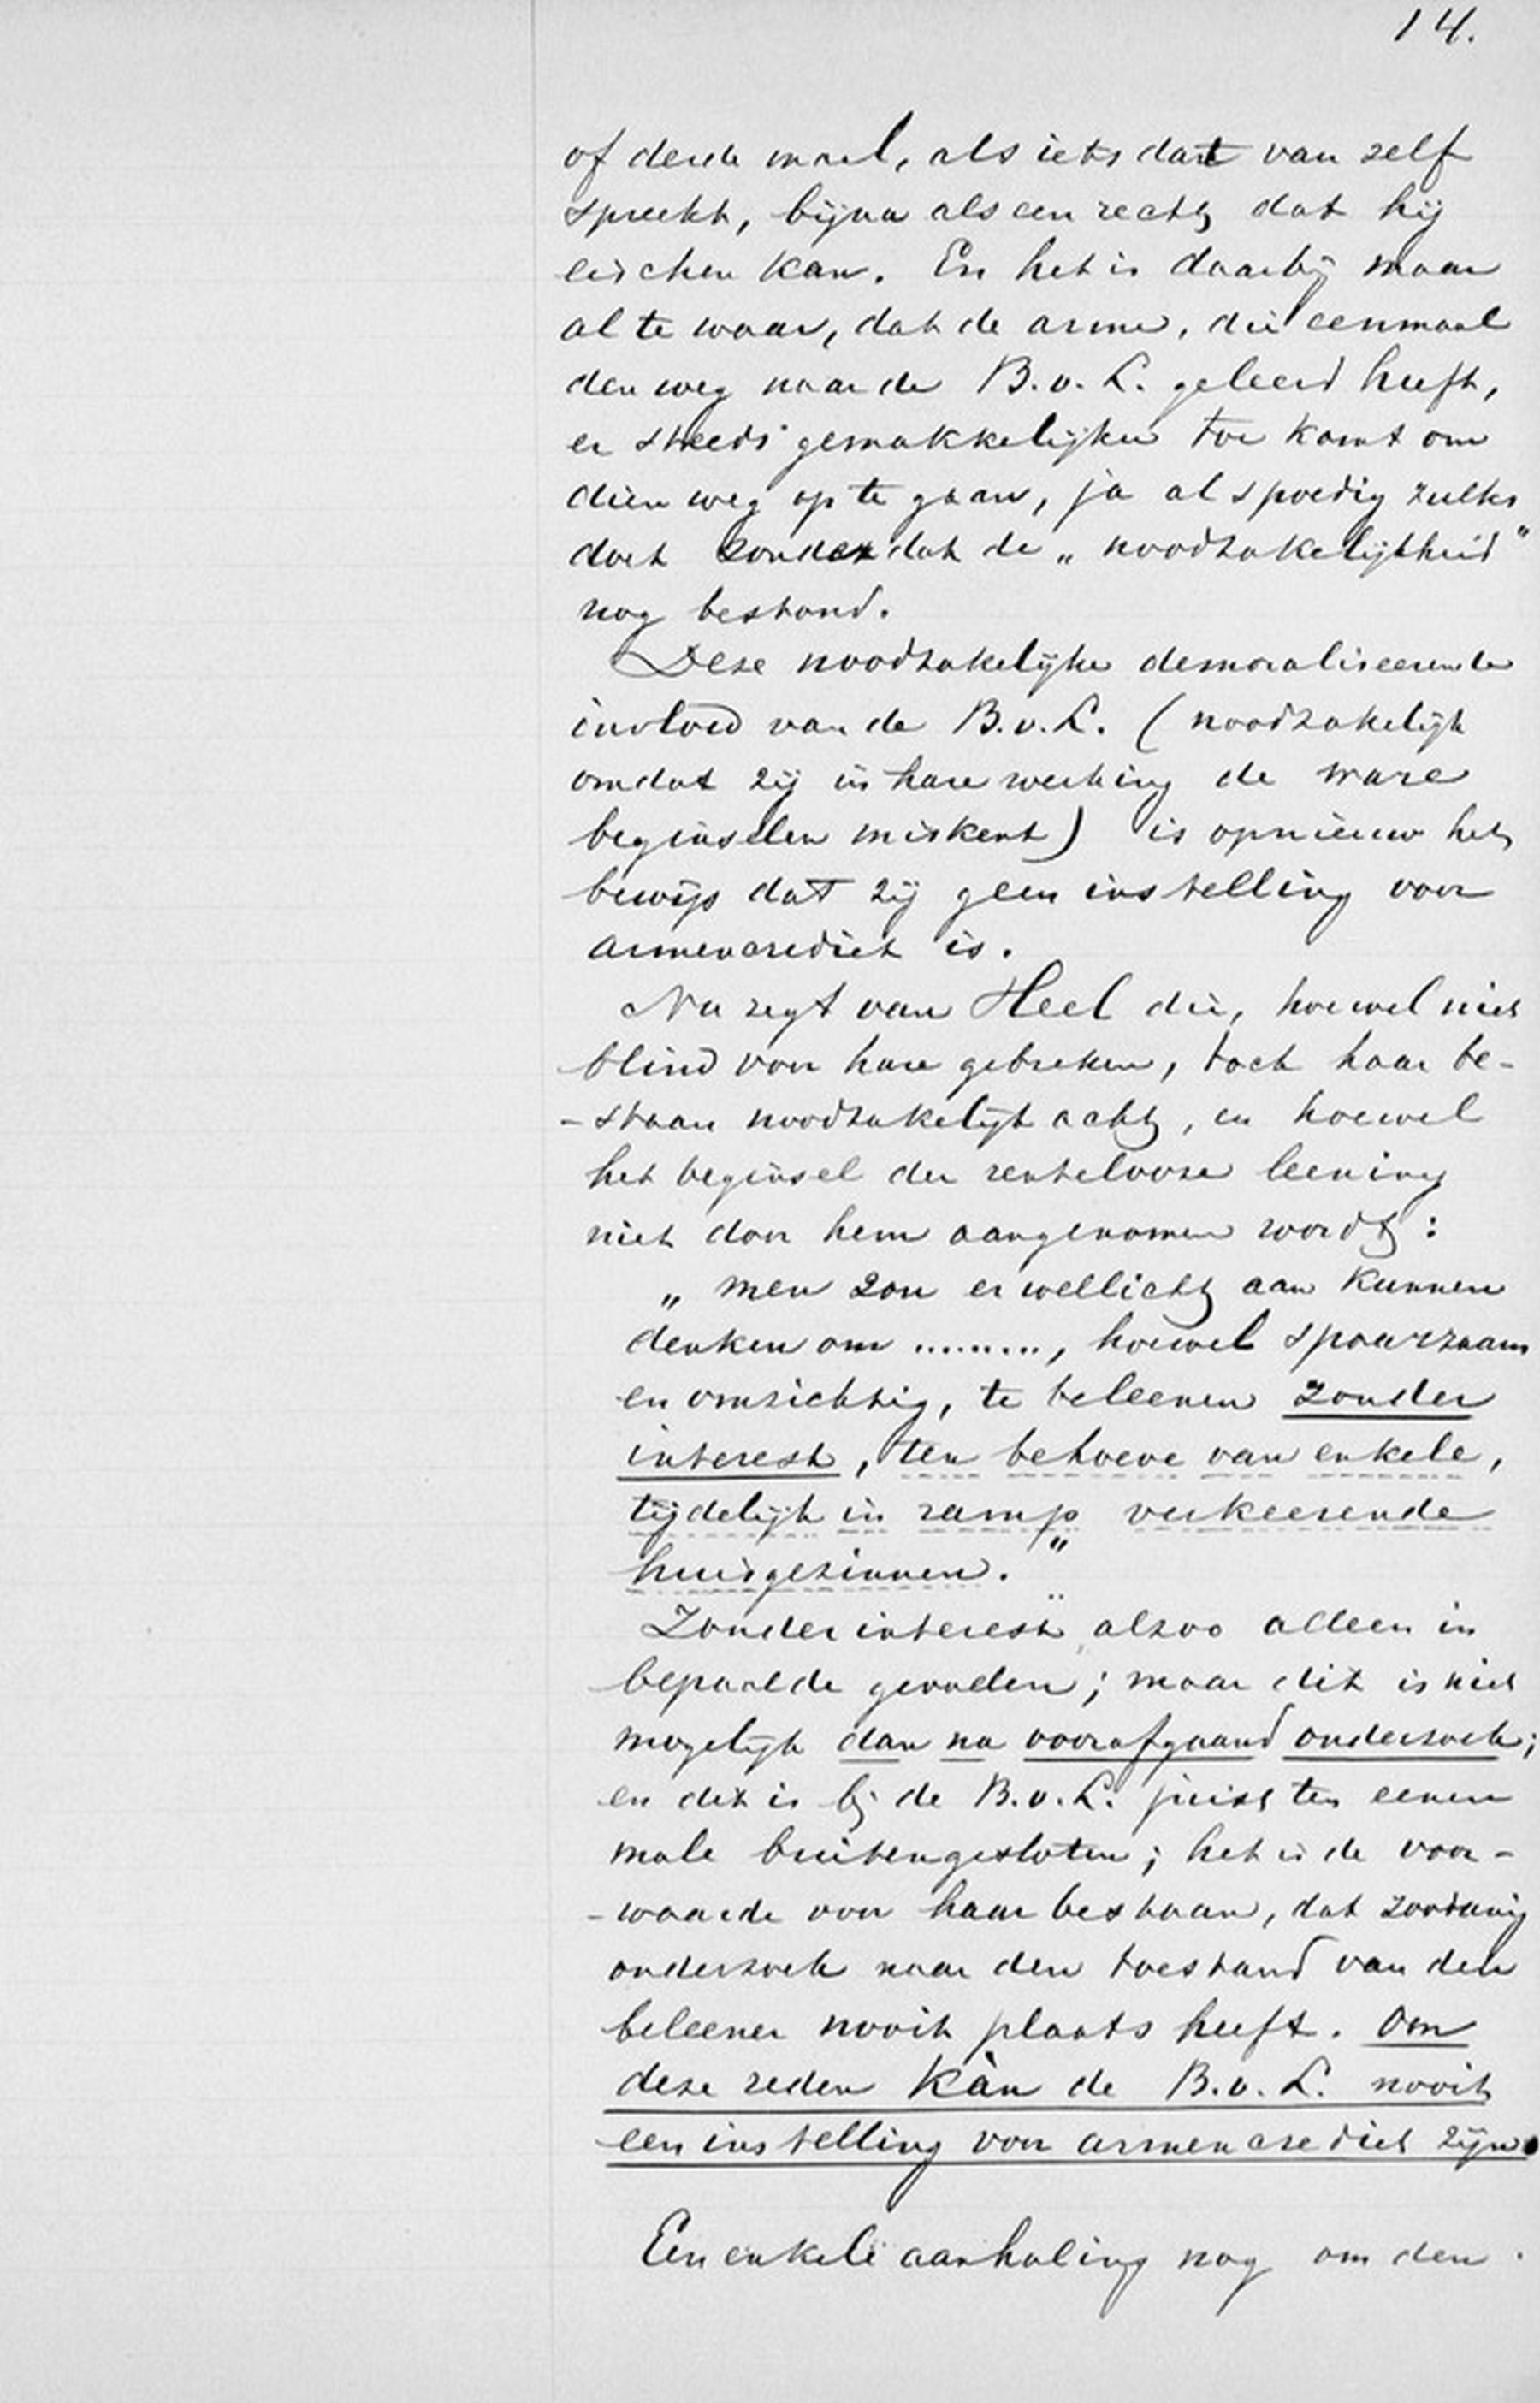 14.
of derde maal, als iets dat van zelf
spreekt, bijna als een recht dat hij
eischen kan. En het is daarbij maar
al te waar, dat de arme, die eenmaal
den weg naar de B. v. L. geleerd heeft,
er steeds gemakkelijker toe komt om
dien weg op te gaan, ja al spoedig zulks
doet zonder dat de „noodzakelijkheid"
nog bestond.
Deze noodzakelijke demoraliseerende
invloed van de B. v. L. (noodzakelijk
omdat zij in hare werking de ware
beginselen miskent) is opnieuw het
bewijs dat zij geen instelling voor
armencrediet is.
Nu zegt van Heel die, hoewel niet
blind voor hare gebreken, toch haar be-
-staan noodzakelijk acht, en hoewel
het beginsel der rentelooze leening
niet door hem aangenomen wordt:
„men zou er wellicht aan kunnen
denken om ........, hoewel spaarzaam
en omzichtig, te beleenen zonder
interest, ten behoeve van enkele,
tijdelijk in ramp verkeerende
huisgezinnen."
Zonder interest alzoo alleen in
bepaalde gevallen; maar dit is niet
mogelijk dan na voorafgaand onderzoek;
en dit is bij de B. v. L. juist ten eenen
male buitengesloten; het is de voor-
-waarde voor haar bestaan, dat zoodanig
onderzoek naar den toestand van den
beleener nooit plaats heeft. Om
deze reden kàn de B. v. L. nooit
een instelling voor armencrediet zijn.
Een enkele aanhaling nog om den